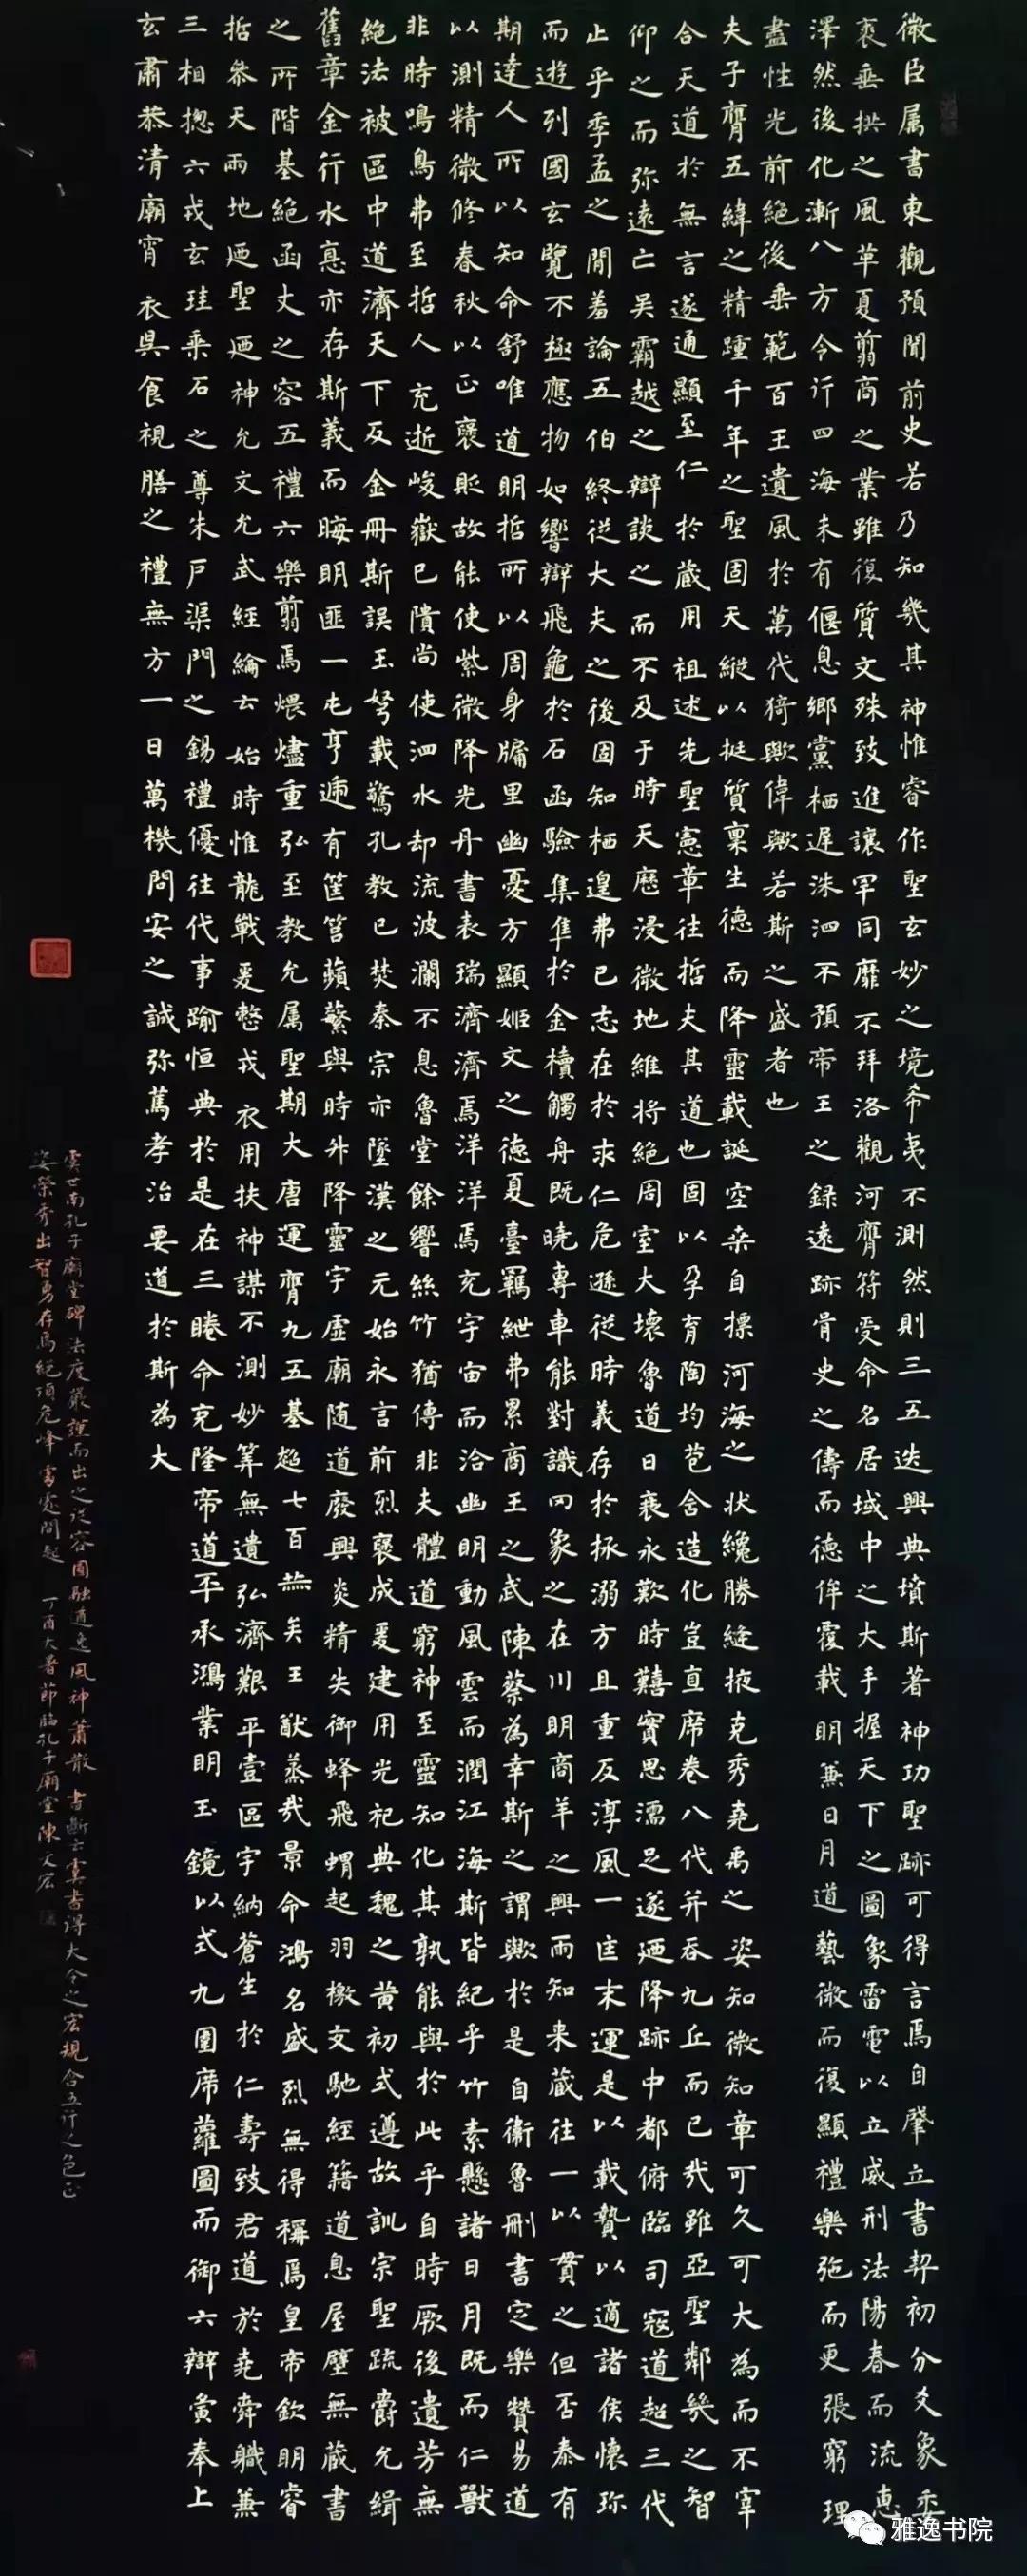 微臣属書東觀預聞前史若乃知幾其神惟睿作聖玄妙之境希夷不測然則三五迭興典墳斯著神功聖跡可得言焉自肇立書契初分爻象委
裘垂拱之風革夏翦商之業雖復質文殊致進讓罕同靡不拜洛觀河膺符受命名居域中之大手握天下之圖象雷電以立威刑法陽春而流恵
澤然後化漸八方令行四海未有偃息鄉黨栖遲洙泗不預帝王之録遠跡胥史之儔而徳侔覆載明兼日月道藝微而復顯禮樂弛而更張窮理
盡性光前絕後垂範百王遺風於萬代猗歟偉歟若斯之盛者也
夫子膺五緯之精踵千年之聖固天縱以挺質稟生徳而降靈載誕空桑自摽河海之状纔勝縫掖克秀堯禹之姿知微知章可久可大為而不宰
合天道於無言遂通顯至仁於蔵用祖述先聖憲章往哲夫其道也固以孕育陶均苞含造化豈直席卷八代并吞九丘而已㢤雖亞聖鄰幾之智
仰之而弥遠亡吴霸越之辯談之而不及于時天歷浸微地維将絕周室大壞魯道日衰永歎時艱實思濡足遂迺降跡中都俯臨司寇道超三代
止乎季孟之閒羞論五伯終從大夫之後固知栖遑弗已志在於求仁危遜從時義存於拯溺方且重反淳風一匡末運是以載贄以適諸侯懷珎
而遊列國玄覽不極應物如響辯飛龜於石函驗集隼於金櫝觸舟既曉專車能對識罔象之在川明商羊之興雨知来蔵往一以貫之但否泰有
期達人所以知命舒唯道明哲所以周身牖里幽憂方顯姬文之徳夏臺羈紲弗累商王之武陳蔡為幸斯之謂歟於是自衛魯刪書定樂贊易道
以測精微修春秋以正襃貶故能使紫微降光丹書表瑞濟濟焉洋洋焉充宇宙而洽幽明動風雲而潤江海斯皆紀乎竹素懸諸日月既而仁獸
非時鳴鳥弗至哲人充逝峻嶽已隤尚使泗水却流波瀾不息魯堂餘響絲竹猶傳非夫體道窮神至靈知化其孰能與於此乎自時厥後遺芳無
絕法被區中道濟天下及金冊斯誤玉弩載驚孔教已焚秦宗亦墜漢之元始永言前烈襃成爰建用光祀典魏之黄初式遵故訓宗聖疏爵允緝
舊章金行水悳亦存斯義而晦明匪一屯亨遞有筐筥蘋蘩與時升降靈宇虚廟随道廢興炎精失御蜂飛蝟起羽檄交馳經籍道息屋壁無蔵書
之所階基絕函丈之容五禮六樂翦焉煨燼重弘至教允属聖期大唐運膺九五基超七百赫矣王猷蒸㢤景命鴻名盛烈無得稱焉皇帝欽明睿
哲叅天兩地迺聖迺神允文允武經綸云始時惟龍戰爰整戎衣用扶神謀不測妙筭無遺弘濟艱平壹區宇納蒼生於仁壽致君道於堯舜職兼
三相揔六戎玄珪乘石之尊朱户渠門之錫禮優往代事踰恒典於是在三睠命克隆帝道丕承鴻業明玉鏡以式九圍席蘿圖而御六辯寅奉上
玄肅恭清廟宵衣旲食視膳之禮無方一日萬機問安之誠弥篤孝治要道於斯為大
虞世南孔子廟堂碑法度嚴謹而出之從容圓融遒逸風神蕭散書斷云虞書得大令之宏規含五行之色正
姿榮秀出智勇存焉絕頂危峰雲霞間起丁酉大暑節臨孔子廟堂陳文宏
雅逸书院